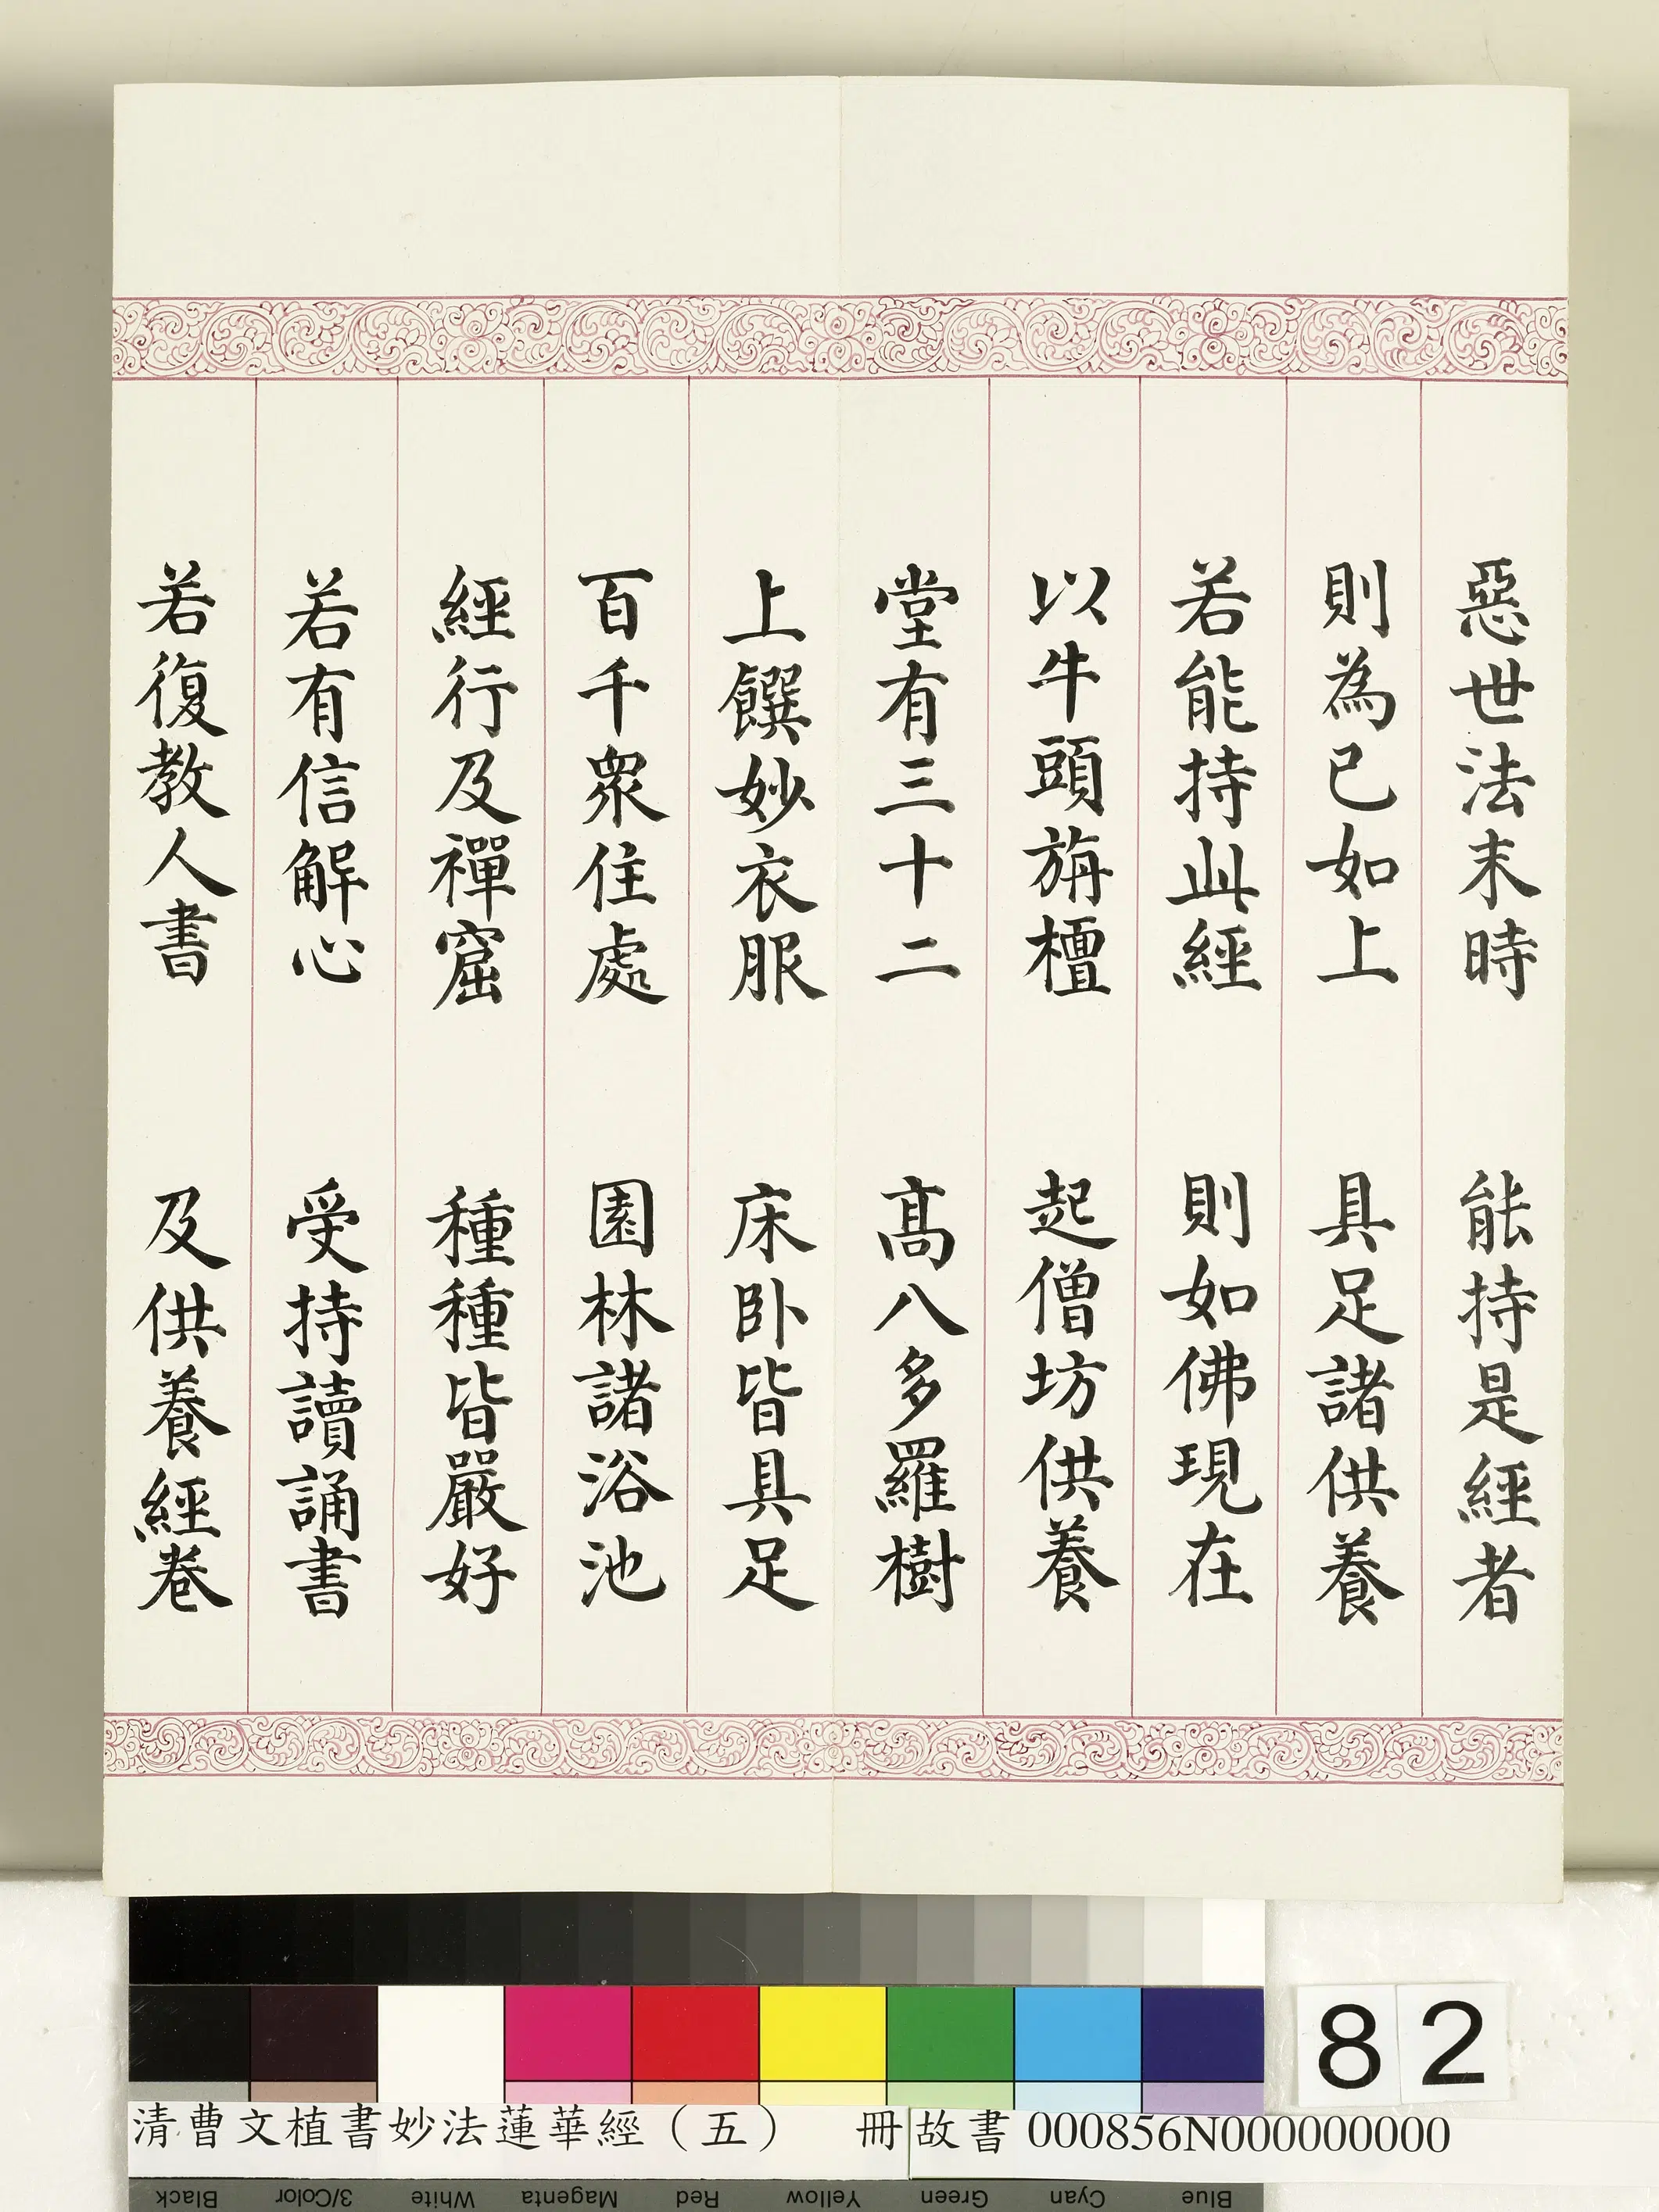 惡世法末時　能持是經者
則為已如上　具足諸供養
若能持此經　則如佛現在
以牛頭旃檀　起僧坊供養
堂有三十二　高八多羅樹
上饌妙衣服　床臥皆具足
百千衆住處　園林諸浴池
經行及禪窟　種種皆嚴好
若有信解心　受持讀誦書
若復教人書　及供養經卷
82
清曹文植書妙法蓮華經（五）　冊 故書 000856N000000000
Black 3/Color White Magenta Red Yellow Green Cyan Blue